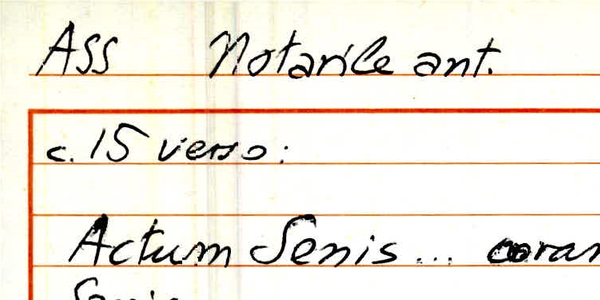 ASS Notarile ant.
c. 15 verso:
Actum Senis... coram